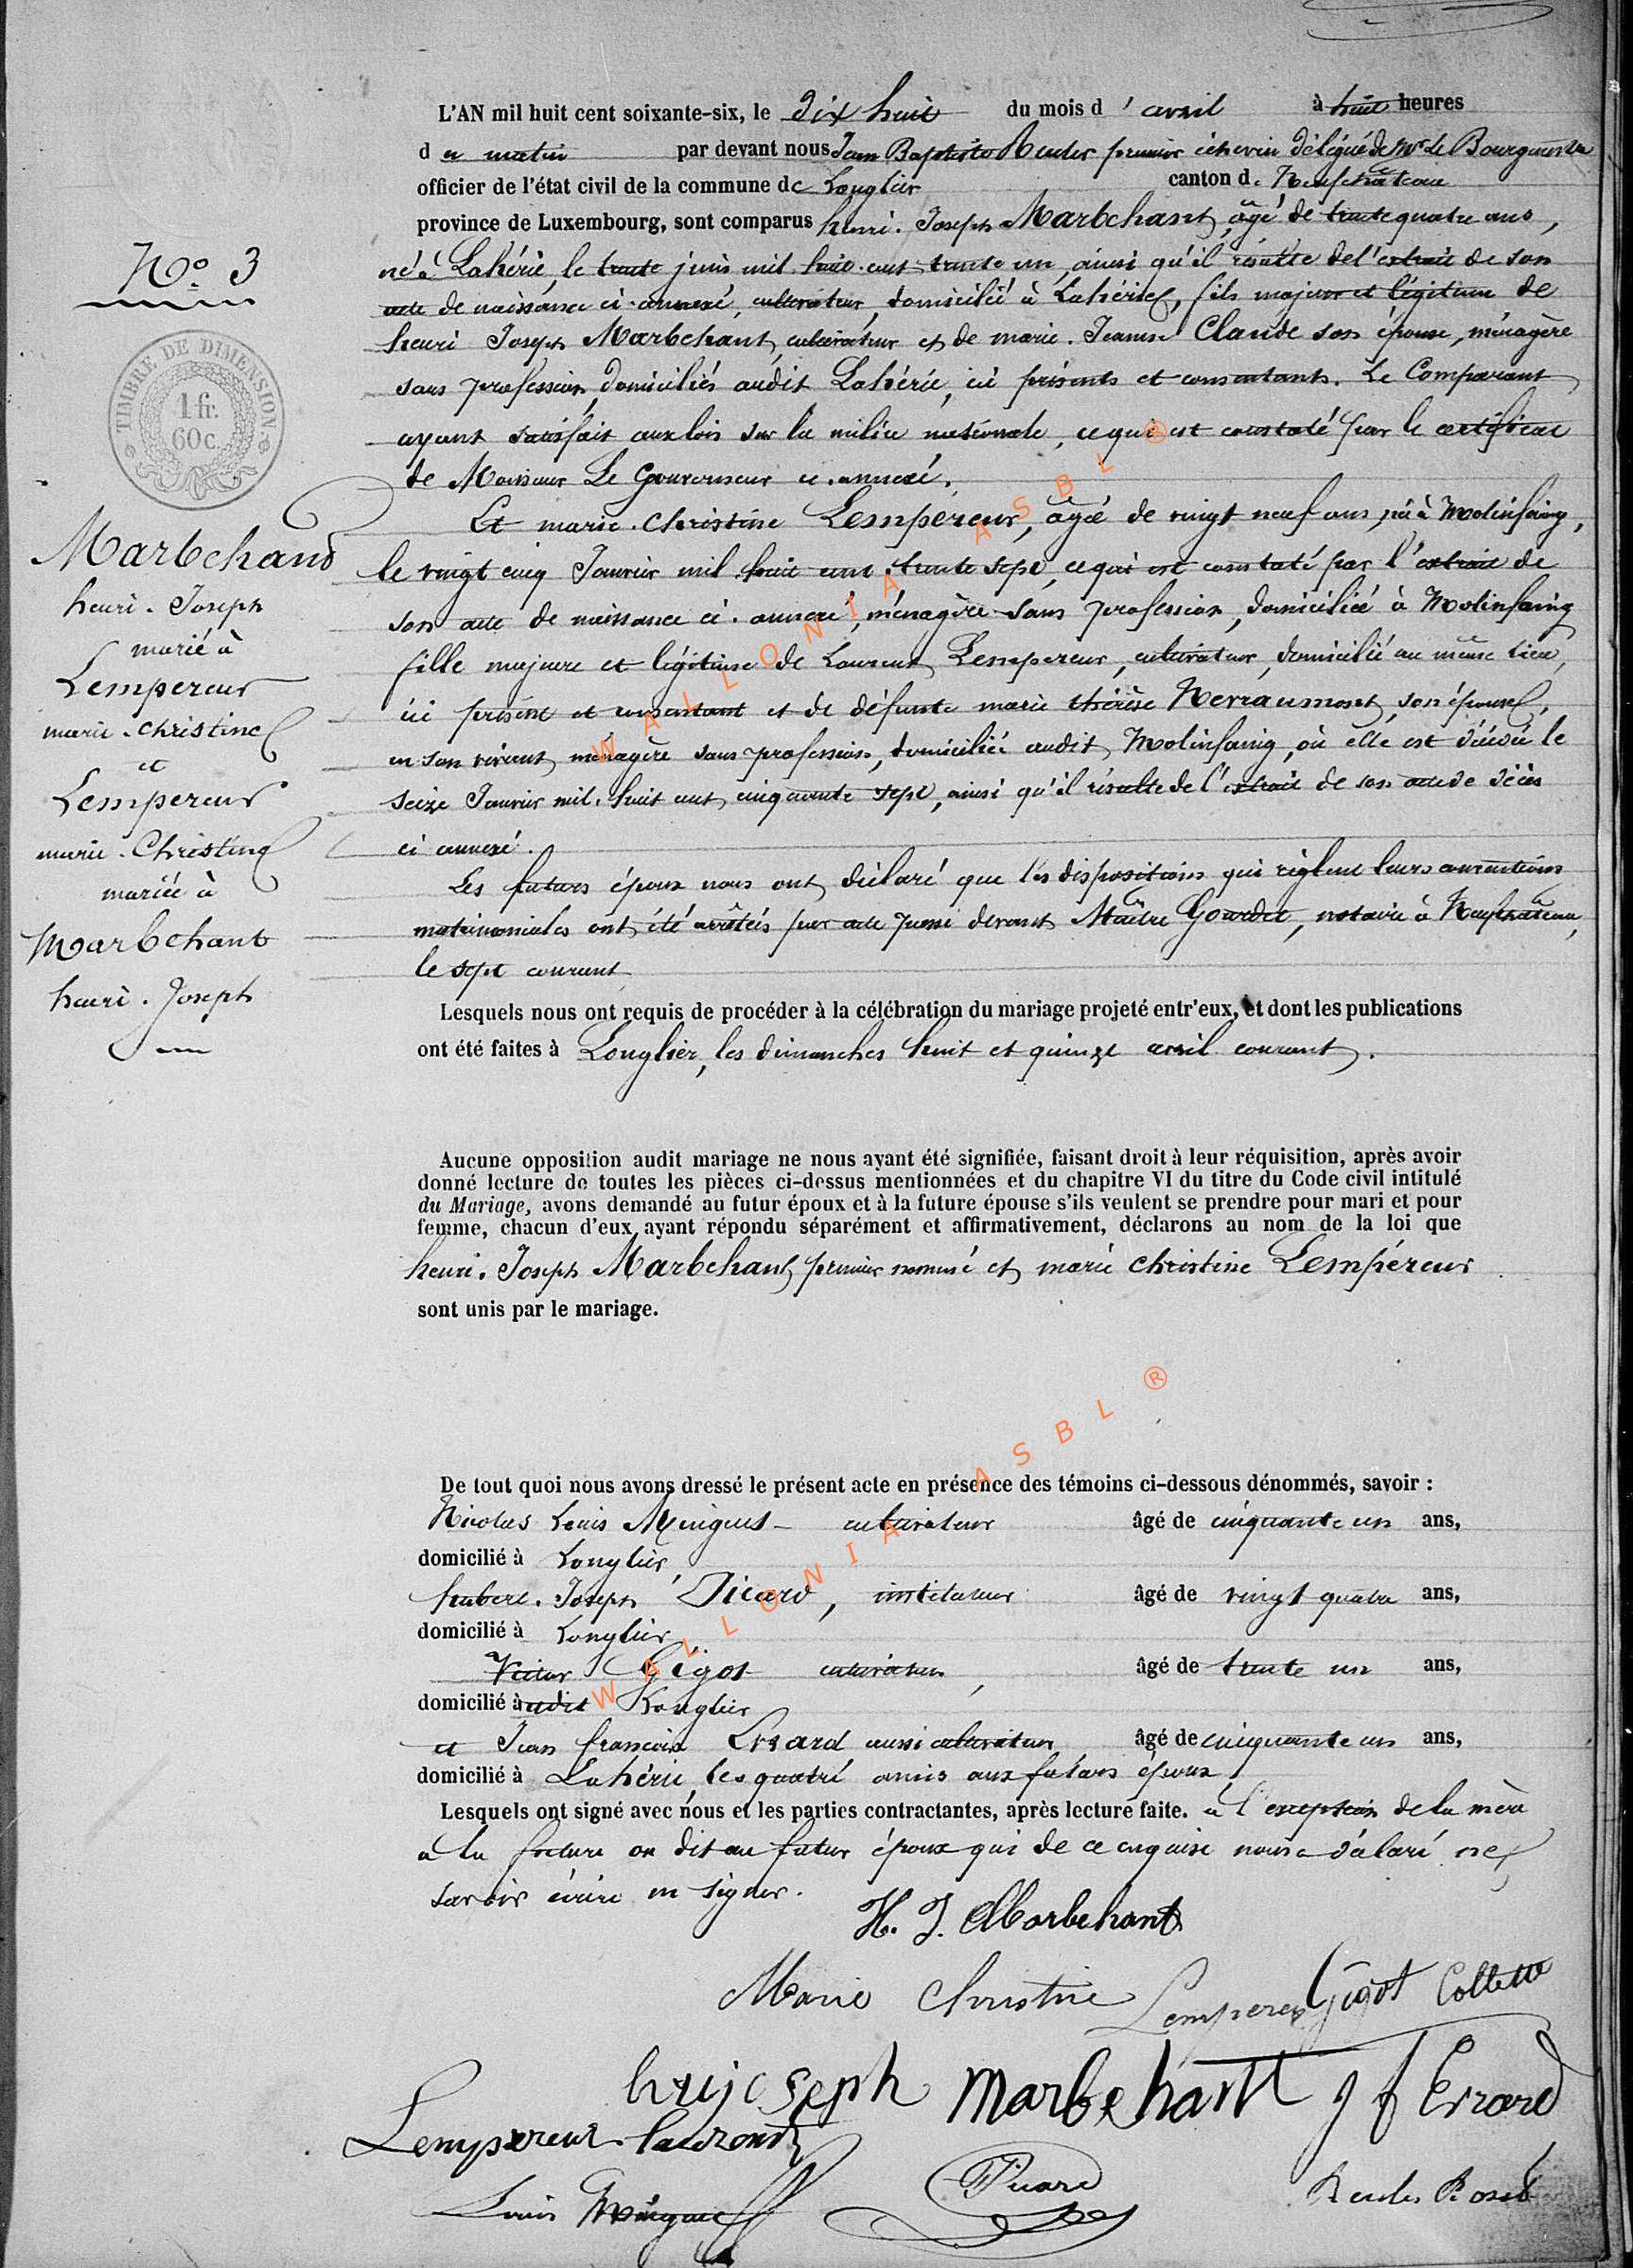 L'AN mil huit cent soixante-six, le dix huit du mois d'avril à huit heures
du matin par devant nous Jean Baptiste Reuler premier échevin délégué de Mr Le Bourgmestre
officier de l'état civil de la commune de Longlier canton de Neufchâteau
province de Luxembourg, sont comparus henri. Joseph Marbehant, âgé de trente quatre ans,
né à Lahérie, le trente juin mil huit cent trente un, ainsi qu'il résulte de l'extrait de son
acte de naissance ci-annexé, cultivateur, domicilié à Lahérie, fils majeur et légitime de
henri Joseph Marbehant, cultivateur et de marie. Jeanne Claude son épouse, ménagère
sans profession, domiciliés audit Lahérie, ici présents et consentants. Le Comparant
ayant satisfait aux lois sur la milice nationale, ce qui est constaté par le certificat
de Monsieur Le Gouverneur ci-annexé.
Et marie. Christine Lempereur, âgée de vingt neuf ans, née à Molinfaing,
le vingt cinq Janvier mil huit cent trente sept, ce qui est constaté par l'extrait de
son acte de naissance ci-annexé, ménagère sans profession, domiciliée à Molinfaing
fille majeure et légitime de Laurent Lempereur, cultivateur, domicilié au même lieu,
ici présent et consentant et de défunte marie thérèse Nerraumont, son épouse,
en son vivant ménagère sans profession, domiciliée audit Molinfaing, où elle est décédée le
seize Janvier mil huit cent cinquante sept, ainsi qu'il résulte de l'extrait de son acte de décès
ci annexé.
Les futurs époux nous ont déclaré que les dispositions qui règlent leurs conventions
matrimoniales ont été arrêtées par acte passé devant Maître Gourdet, notaire à Neufchâteau,
le sept courant
Lesquels nous ont requis de procéder à la célébration du mariage projeté entr'eux, et dont les publications
ont été faites à Longlier, les dimanches huit et quinze avril courant.
Aucune opposition audit mariage ne nous ayant été signifiée, faisant droit à leur réquisition, après avoir
donné lecture de toutes les pièces ci-dessus mentionnées et du chapitre VI du titre du Code civil intitulé
du Mariage, avons demandé au futur époux et à la future épouse s'ils veulent se prendre pour mari et pour
femme, chacun d'eux ayant répondu séparément et affirmativement, déclarons au nom de la loi que
henri. Joseph Marbehant, premier nommé et marie Christine Lempéreur
sont unis par le mariage.
De tout quoi nous avons dressé le présent acte en présence des témoins ci-dessous dénommés, savoir :
Nicolas Louis Minguet cultivateur âgé de cinquante un ans,
domicilié à Longlier,
hubert. Joseph Picard, instituteur âgé de vingt quatre ans,
domicilié à Longlier
Victor Gigot cultivateur, âgé de trente un ans,
domicilié audit Longlier
et Jean françois Evrard aussi cultivateur âgé de cinquante un ans,
domicilié à Lahérie, les quatre amis aux futurs époux
Lesquels ont signé avec nous et les parties contractantes, après lecture faite. à l'exception de la mère
a la future on dit au futur époux qui de ce enquise nous a déclaré ne
savoir écrire ni signer.
H. J. Marbehant
Marie Christine Lempereur Gigot Collette
hrijoseph marbehant j f Evrard
Lempereur laurent
Louis Minguet Picard Reuler
No 3
TIMBRE DE DIMENSION
1 fr.
60 c.
Marbehant
henri. Joseph
marié à
Lempereur
marie. christine
et
Lempereur
marie. Christine
mariée à
Marbehant
henri. Joseph
WALLONIA ASBL ®
WALLONIA ASBL ®